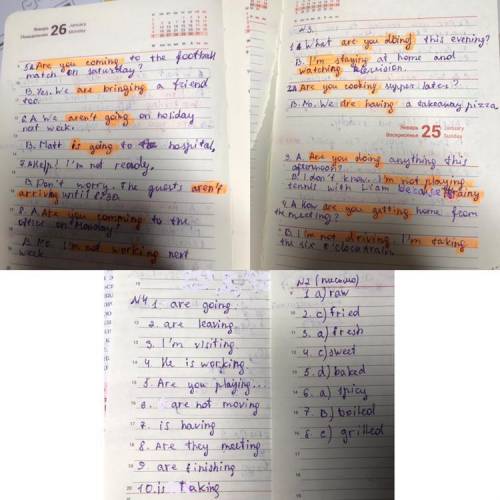 Январь 26 January
Понедельник Monday
5A Are you coming to the football
match on saturday?
B. Yes. We are bringing a friend
too.
6.A. We aren't going on holiday
next week.
B. Matt is going to hospital,
7.A Help! I'm not ready.
B. Don't worry. The guests aren't
arriving until
8. A. Are you comming to the
office on Monday?
B. No. I'm not working next
week
N3.
1.A. What are you doing this evening?
B. I'm staying at home and
watching television.
2A Are you cooking supper later?
B. No. We are having a takeaway pizza
Январь 25 January
Воскресенье Sunday
3. A. Are you doing anything this
afternoon?
B. I don't know. I'm not playing
tennis with Liam because rainy
4. A. How are you getting home from
the meeting?
B. I'm not driving. I'm taking
the six o'clock train.
N4 1. are going
2. are leaving
3. I'm visiting
4. He is working
5. Are you playing...
6. are not moving
7. is having
8. Are they meeting
9 are finishing
10. is taking
N2 (письмо)
1 a) raw
2. c) fried
3. a) fresh
4. c) sweet
5. d) baked
6. a) spicy
7. B) boiled
8. c) grilled